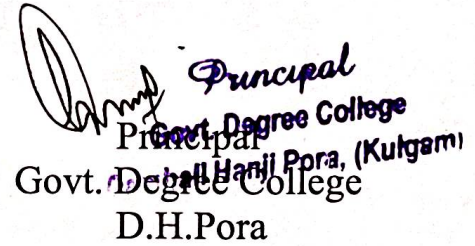 Principal
Govt. Degree College
Hanji Pora, (Kulgam)
Principal
Govt. Degree College
D.H.Pora